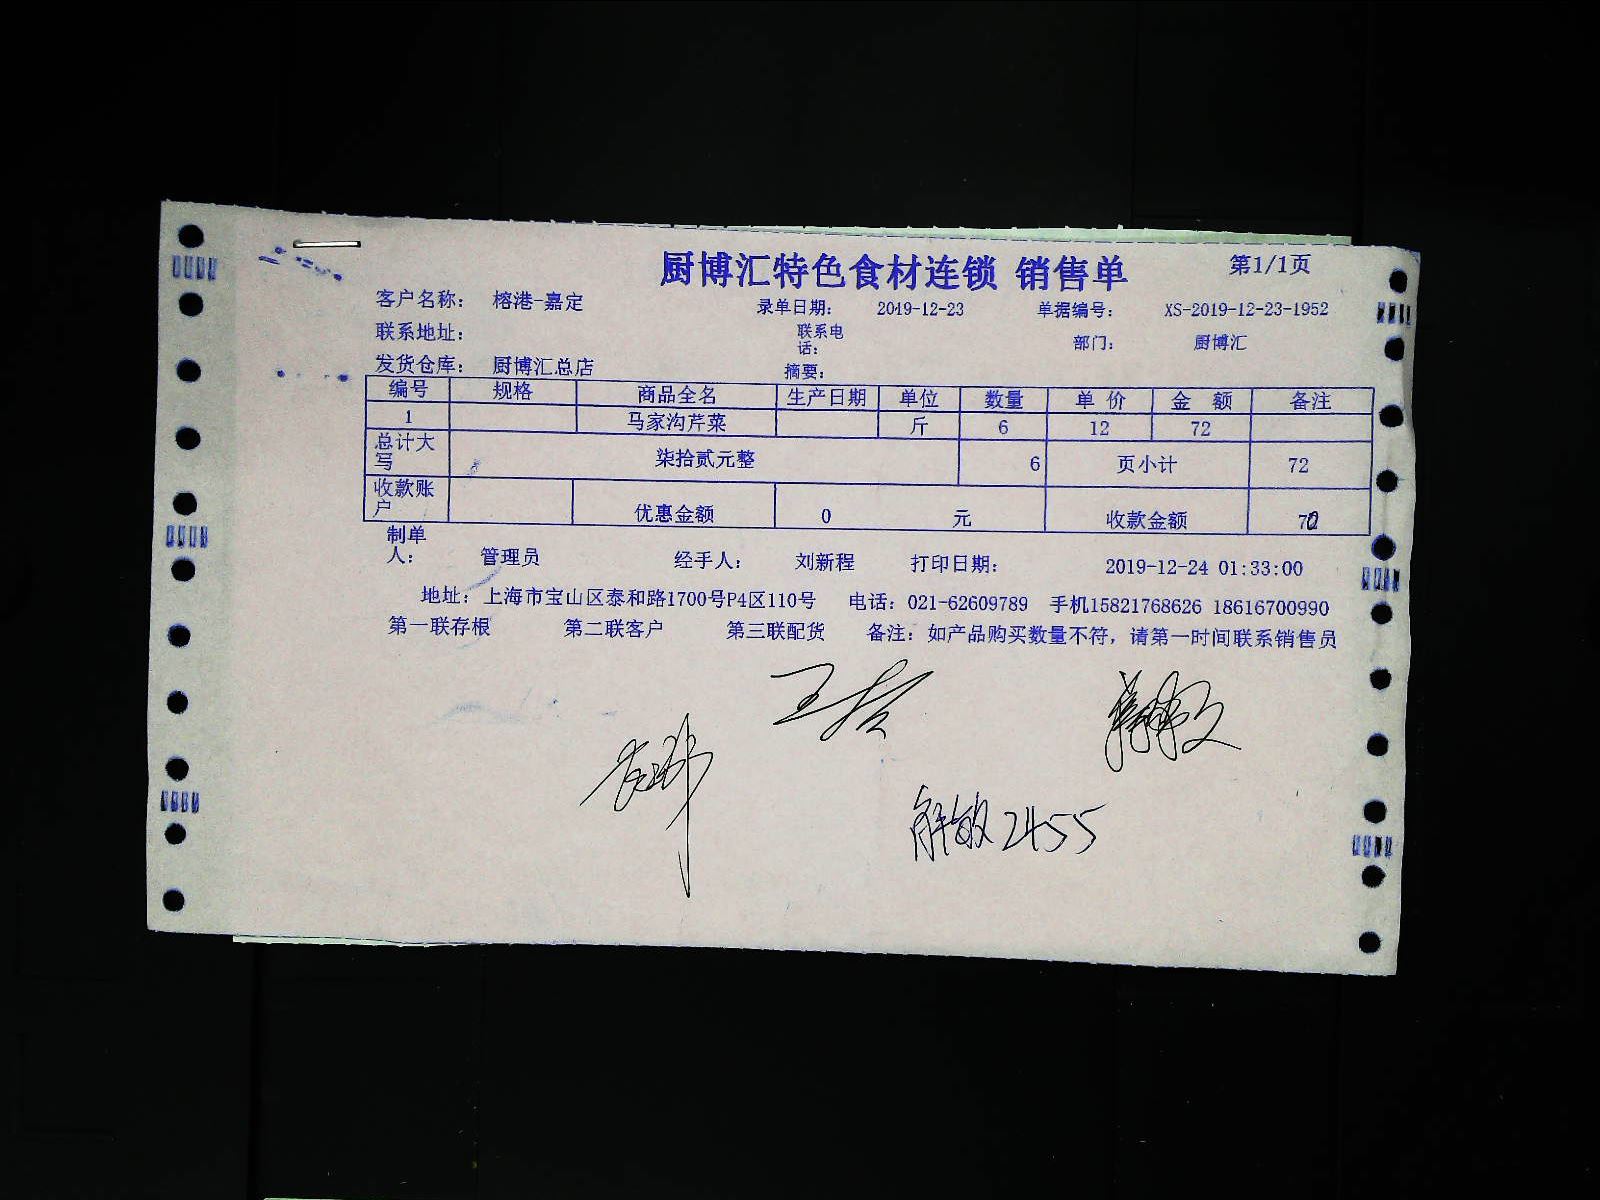 厨博汇特色食材连锁 销售单 第1/1页
客户名称： 榕港-嘉定 录单日期： 2019-12-23 单据编号： XS-2019-12-23-1952
联系地址： 联系电话： 部门： 厨博汇
发货仓库： 厨博汇总店 摘要：
编号 规格 商品全名 生产日期 单位 数量 单价 金额 备注
1 马家沟芹菜 斤 6 12 72
总计大写 柒拾贰元整 6 页小计 72
收款账户 优惠金额 0 元 收款金额
制单人： 管理员 经手人： 刘新程 打印日期： 2019-12-24 01:33:00
地址：上海市宝山区泰和路1700号P4区110号 电话：021-62609789 手机15821768626 18616700990
第一联存根 第二联客户 第三联配货 备注：如产品购买数量不符，请第一时间联系销售员
2455